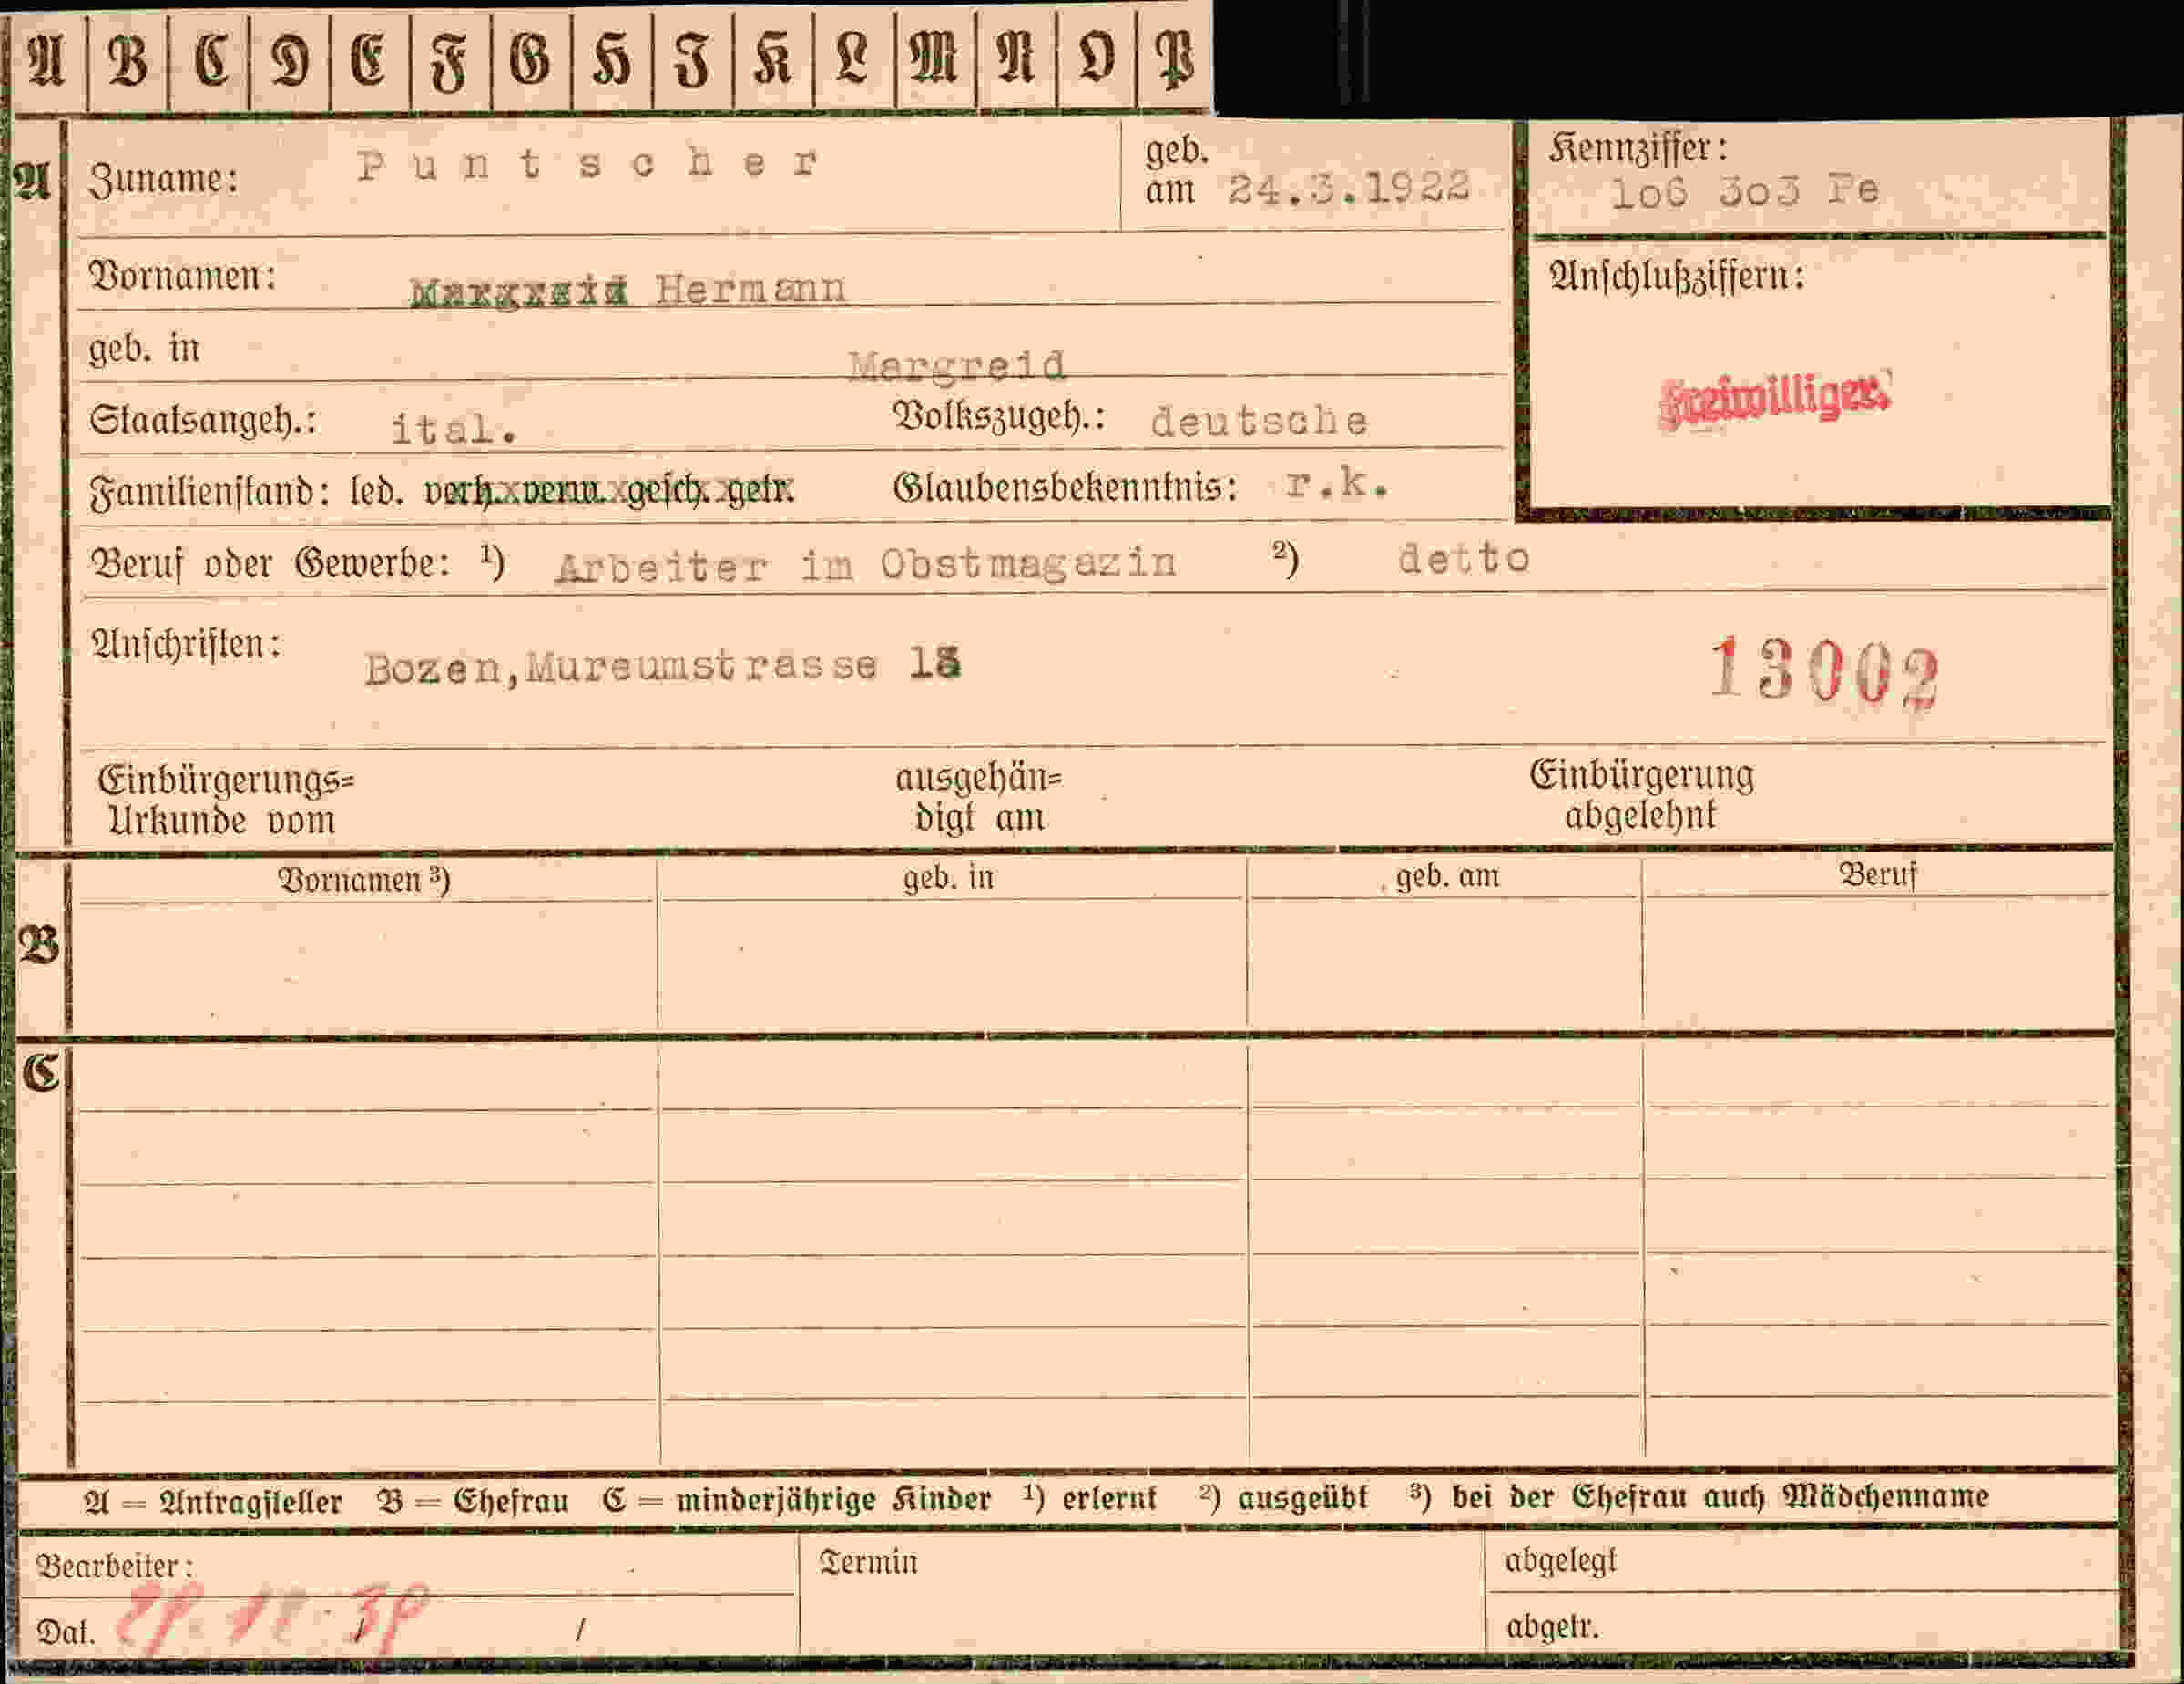 A B C D E F G H I K L M N O P
A Zuname: Puntscher geb. am 24.3.1922 Kennziffer: 1o6 3o3 Pe
Vornamen: Margreid Hermann Anschlußziffern:
geb. in Margreid
Freiwilliger
Staatsangeh.: ital. Volkszugeh.: deutsche
Familienstand: led. verh. verw. gesch. getr. Glaubensbekenntnis: r.k.
Beruf oder Gewerbe: ¹) Arbeiter im Obstmagazin ²) detto
Anschriften: Bozen,Mureumstrasse 18 13002
Einbürgerungs= ausgehän= Einbürgerung
Urkunde vom digt am abgelehnt
Vornamen ³) geb. in geb. am Beruf
B
C
A = Antragsteller B = Ehefrau C = minderjährige Kinder ¹) erlernt ²) ausgeübt ³) bei der Ehefrau auch Mädchenname
Bearbeiter: Termin abgelegt
Dat. / / abgetr.